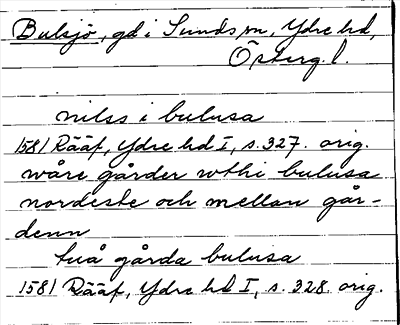 Bulsjö, gd i Sunds sn, Ydre hd,
Österg. l.
nilss i bulusa
1581 Rääf, Ydre hd I, s. 327. orig.
wåre gårder wthi bulusa
nordeste och mellan går-
denn
tuå gårda bulusa
1581 Rääf, Ydre hd I, s. 328. orig.